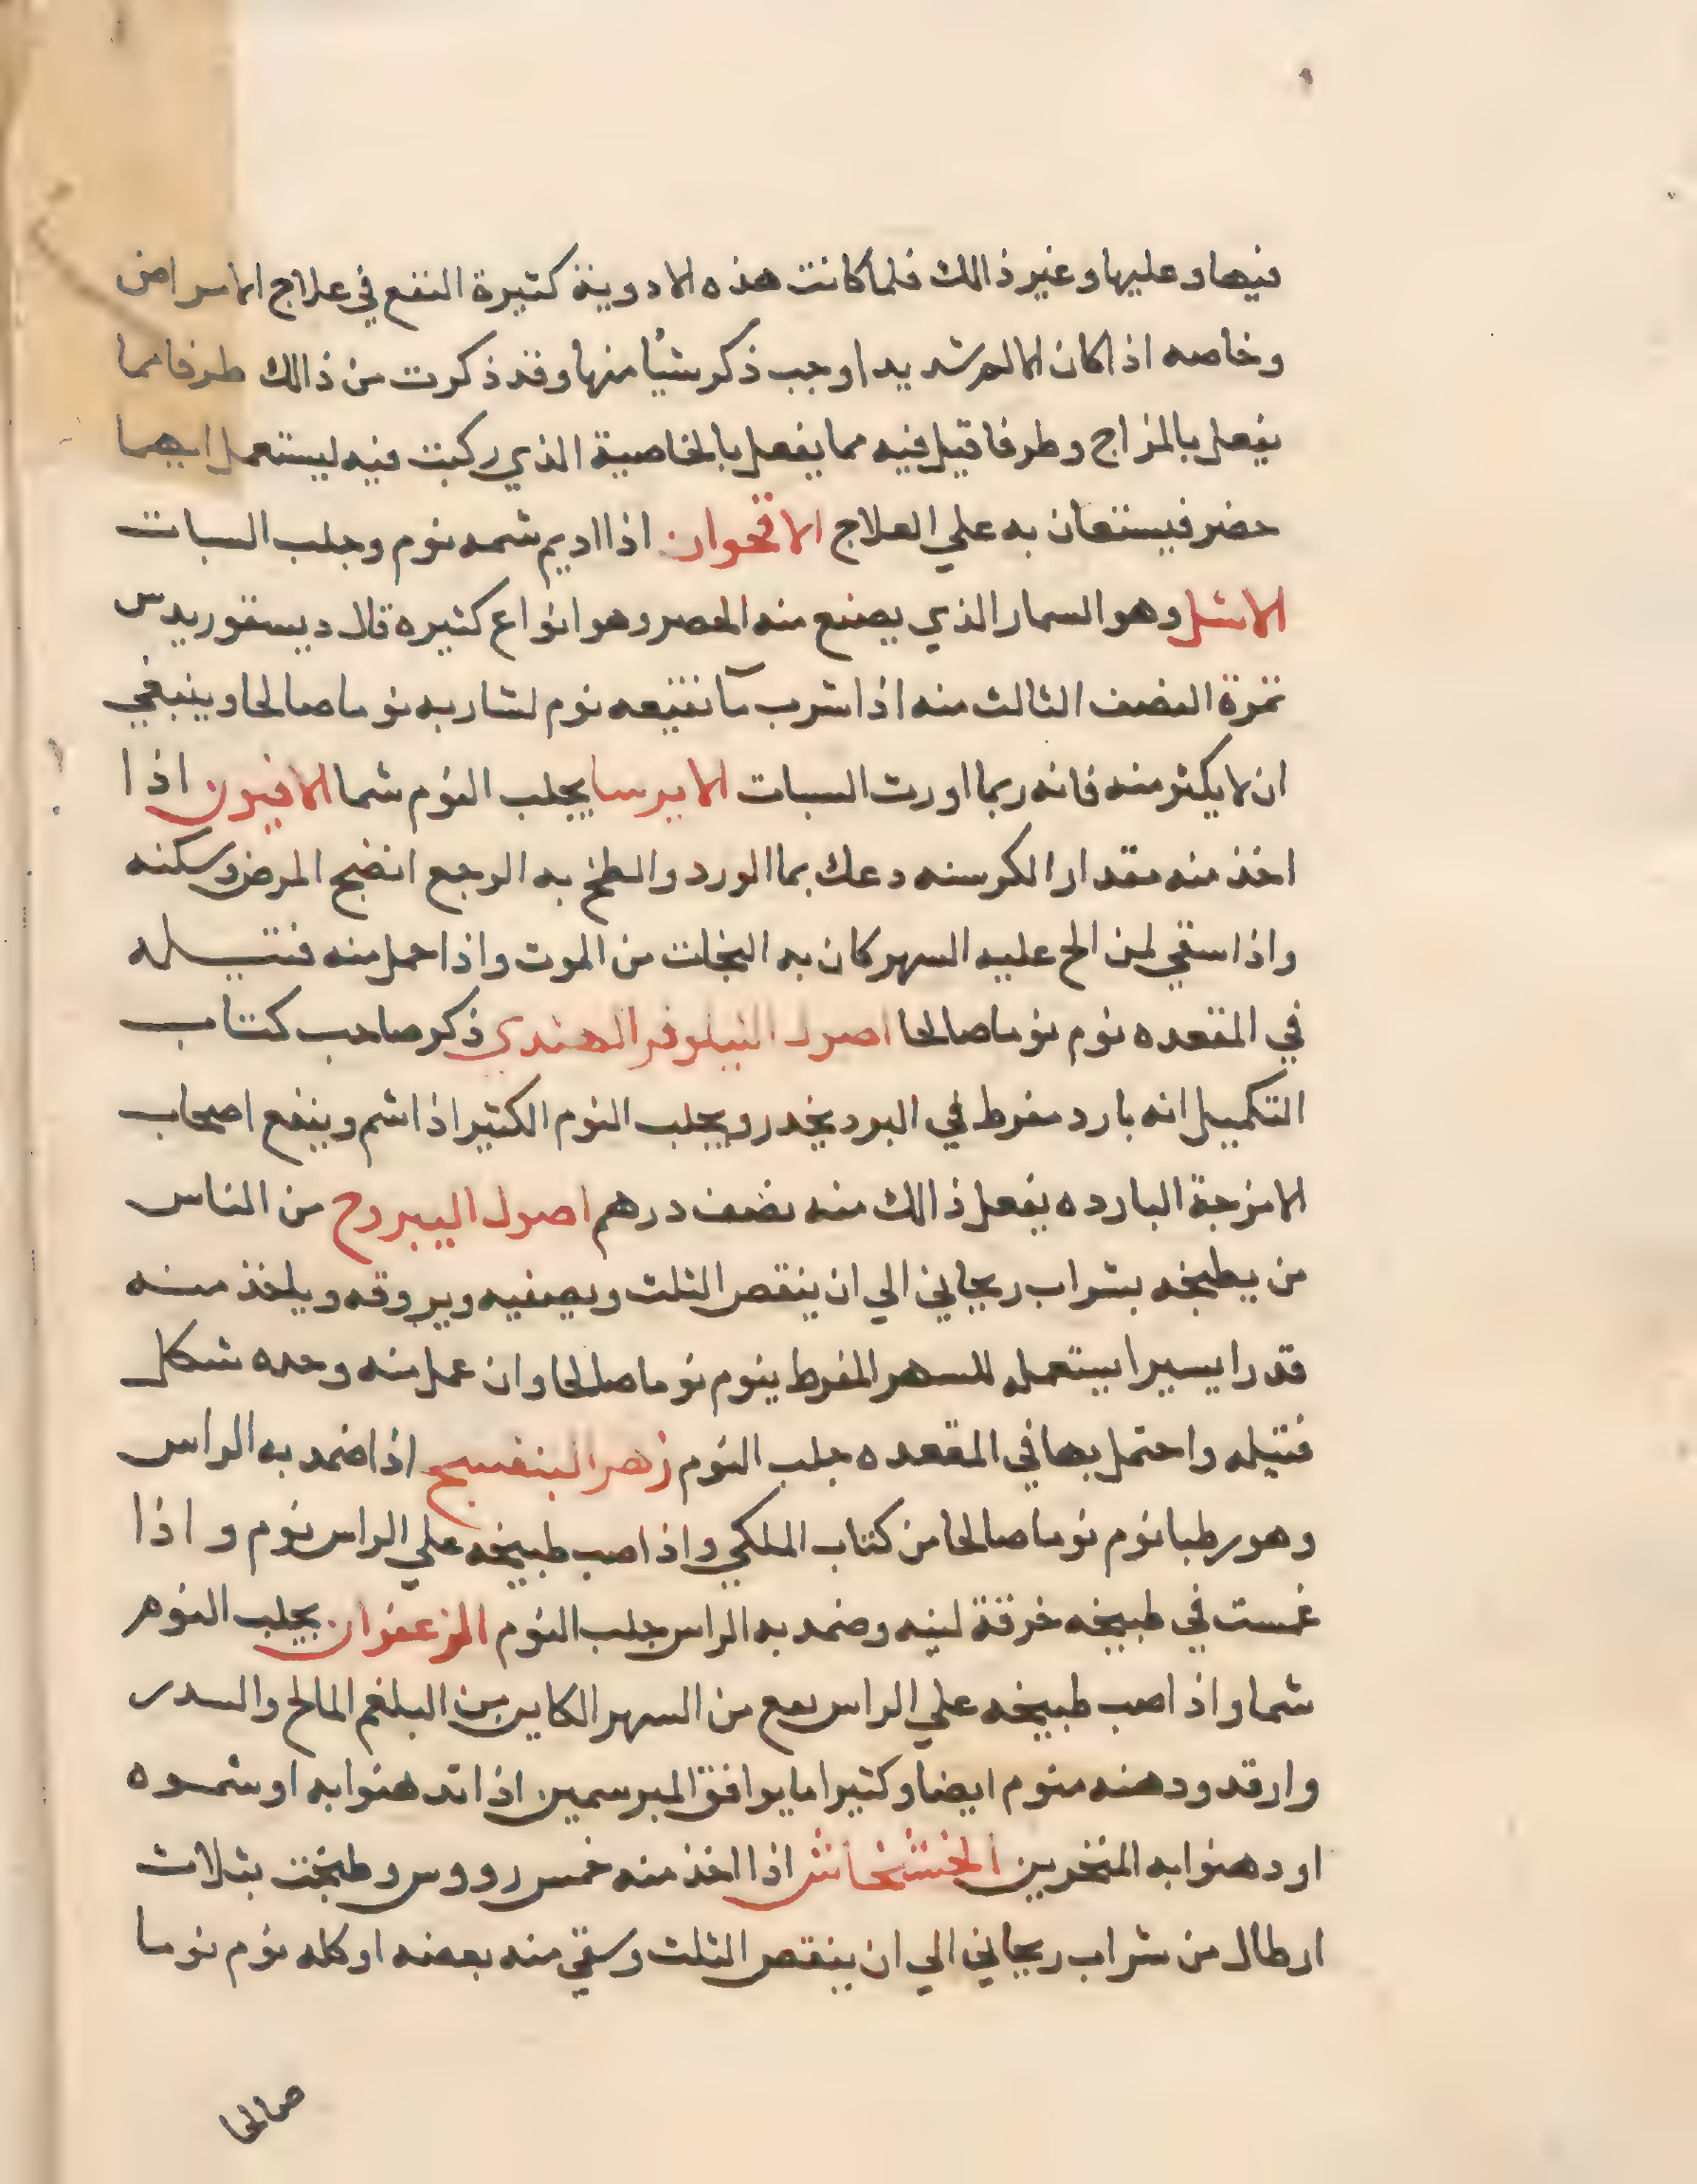 فيها وعليها وغير ذالك فلما كانت هذه الادوية كثيرة النفع في علاج الامراض
وخاصه اذا كان الالم شديدا وجب ذكر شيأ منها وقد ذكرت من ذالك طرفا مما
يفعل بالمزاج وطرفا قيل فيه مما يفعل بالخاصية الذي ركبت فيه ليستعمل ايهما
حضر فيستعان به علي العلاج الاقحوان اذا اديم شمه نوم وجلب السبات
الاسل وهو السمار الذي يصنع منه الحصر وهو انواع كثيره قال ديسقوريدس
ثمرة الصنف الثالث منه اذا شرب مآ نقيعه نوم لشاربه نوما صالحا وينبغي
ان لا يكثر منه فانه ربما اورث السبات الايرسا يجلب النوم شما الافيون اذا
اخذ منه مقدار الكرسنه دعك بما الورد والطخ به الوجع انضج المرض وسكنه
واذا سقي لمن الح عليه السهر كان به النجات من الموت واذا حمل منه فتيله
في المقعده نوم نوما صالحا اصول النيلوفر الهندي ذكر صاحب كتاب
التكميل انه بارد مفرط في البرد يخدر ويجلب النوم الكثير اذا شم وينفع اصحاب
الامزجة البارده يفعل ذالك منه نصف درهم اصول اليبروح من الناس
من يطبخه بشراب ريحاني الي ان ينقص الثلث ويصفيه ويروقه وياخذ منه
قدرا يسيرا يستعمله للسهر المفرط ينوم نوما صالحا وان عمل منه وحده شكل
فتيله واحتمل بها في المقعده جلب النوم زهر البنفسج اذا ضمد به الراس
وهو رطبا نوم نوما صالحا من كتاب الملكي واذا صب طبيخه علي الراس نوم واذا
غمست في طبيخه خرقة لينه وضمد به الراس جلب النوم الزعفران يجلب النوم
شما واذا صب طبيخه علي الراس نفع من السهر الكاين من البلغم المالح والسدر
وارقد ودهنه منوم ايضا وكثيرا ما يوافق المبرسمين اذا تدهنوا به او شموه
او دهنوا به المنخرين الخشخاش اذا اخذ منه خمس رووس وطبخت بثلاث
ارطال من شراب ريحاني الي ان ينقص الثلث وسقي منه بعضه او كله نوم نوما
صالحا